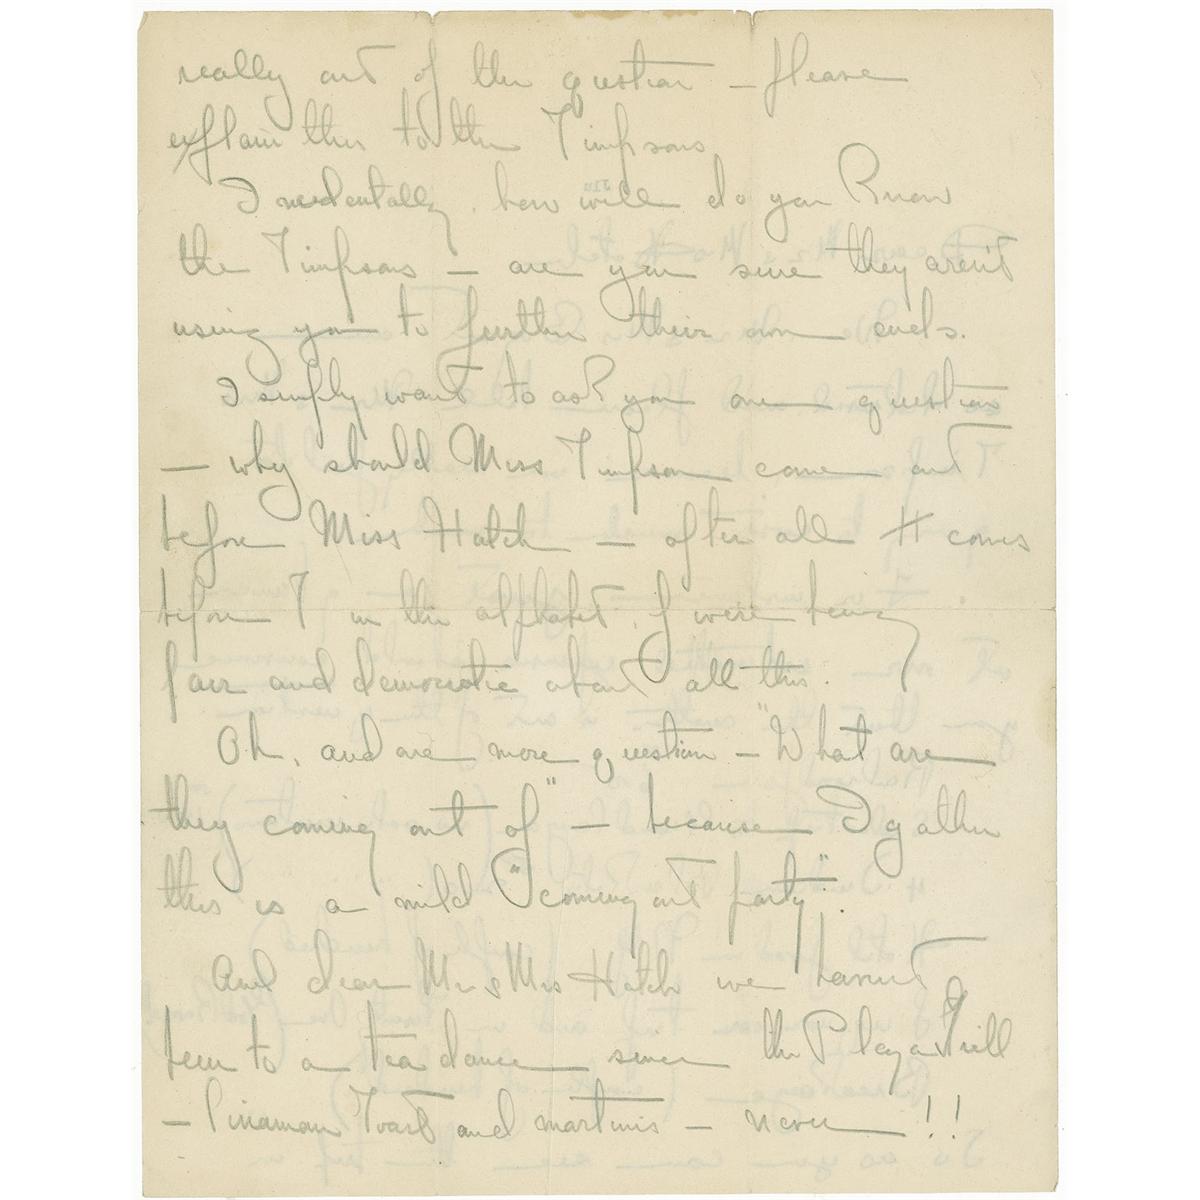 really out of the question — please
explain this to the Timpsons
Incidentally, how well do you know
the Timpsons — are you sure they aren't
using you to further their own ends.
I simply want to ask you one question
— why should Miss Timpson come out
before Miss Hatch — after all H comes
before T in the alphabet, if were being
fair and democratic about all this.
Oh, and one more question — "What are
they coming out of" — because I gather
this is a mild "coming out party".
And dear Mr & Mrs Hatch we havent
been to a tea dance since the Plaza Grill
— Cinamon Toast and martinis — never!!